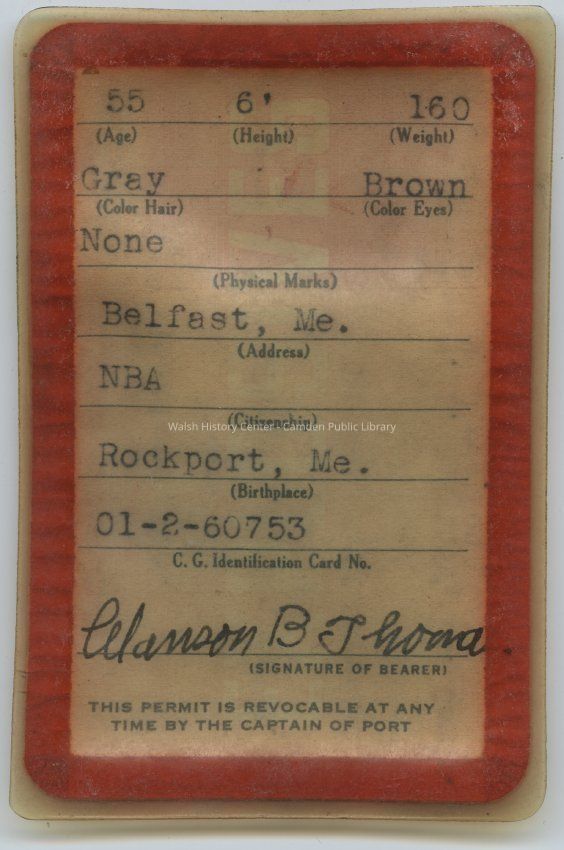 55 6' 160
(Age) (Height) (Weight)
Gray Brown
(Color Hair) (Color Eyes)
None
(Physical Marks)
Belfast, Me.
(Address)
NBA
(Citizenship)
Walsh History Center - Camden Public Library
Rockport, Me.
(Birthplace)
01-2-60753
C. G. Identification Card No.
Alanson B
(SIGNATURE OF BEARER)
THIS PERMIT IS REVOCABLE AT ANY
TIME BY THE CAPTAIN OF PORT